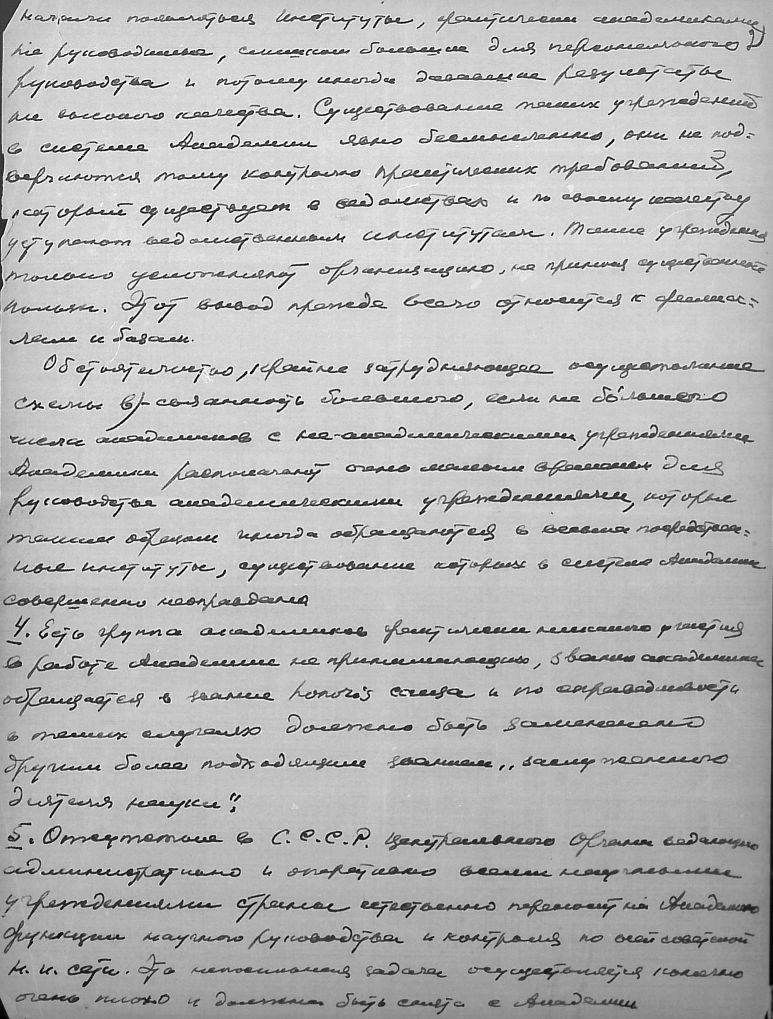 начали появляться институты, фактически академиками
не руководимые, слишком большие для персонального
руководства и потому иногда дававшие результаты
не высокого качества. Существование таких учреждений
в системе Академии явно бессмысленно, они не под-
вергаются тому контролю практических требований,
который существует в ведомствах и по своему качеству
уступают ведомственным институтам. Такие учреждения
только усложняют организацию, не принося существенной
пользы. Этот вывод прежде всего относится к филиа-
лам и базам.
Обстоятельство, крайне затрудняющее осуществление
схемы – связанность большого, если не бо́льшего
числа академиков с не-академическими учреждениями
Академики располагают очень малым временем для
руководства академическими учреждениями, которые
таким образом иногда обращаются в весьма посредствен-
ные институты, существование которых в системе Академии
совершенно неоправдано
4. Есть группа академиков фактически никакого участия
в работе Академии не принимающих, звание академика
обращается в звание honoris causa и по справедливости
в таких случаях должно быть заменено
другим более подходящим званием „заслуженного
деятеля науки“.
5. Отсутствие в С.С.С.Р. Центрального Органа ведающего
административно и оперативно всеми научными
учреждениями страны естественно переносит на Академию
функции научного руководства и контроля по всей советской
н. и. сети. Эта непосильная задача осуществляется конечно
очень плохо и должна быть снята с Академии